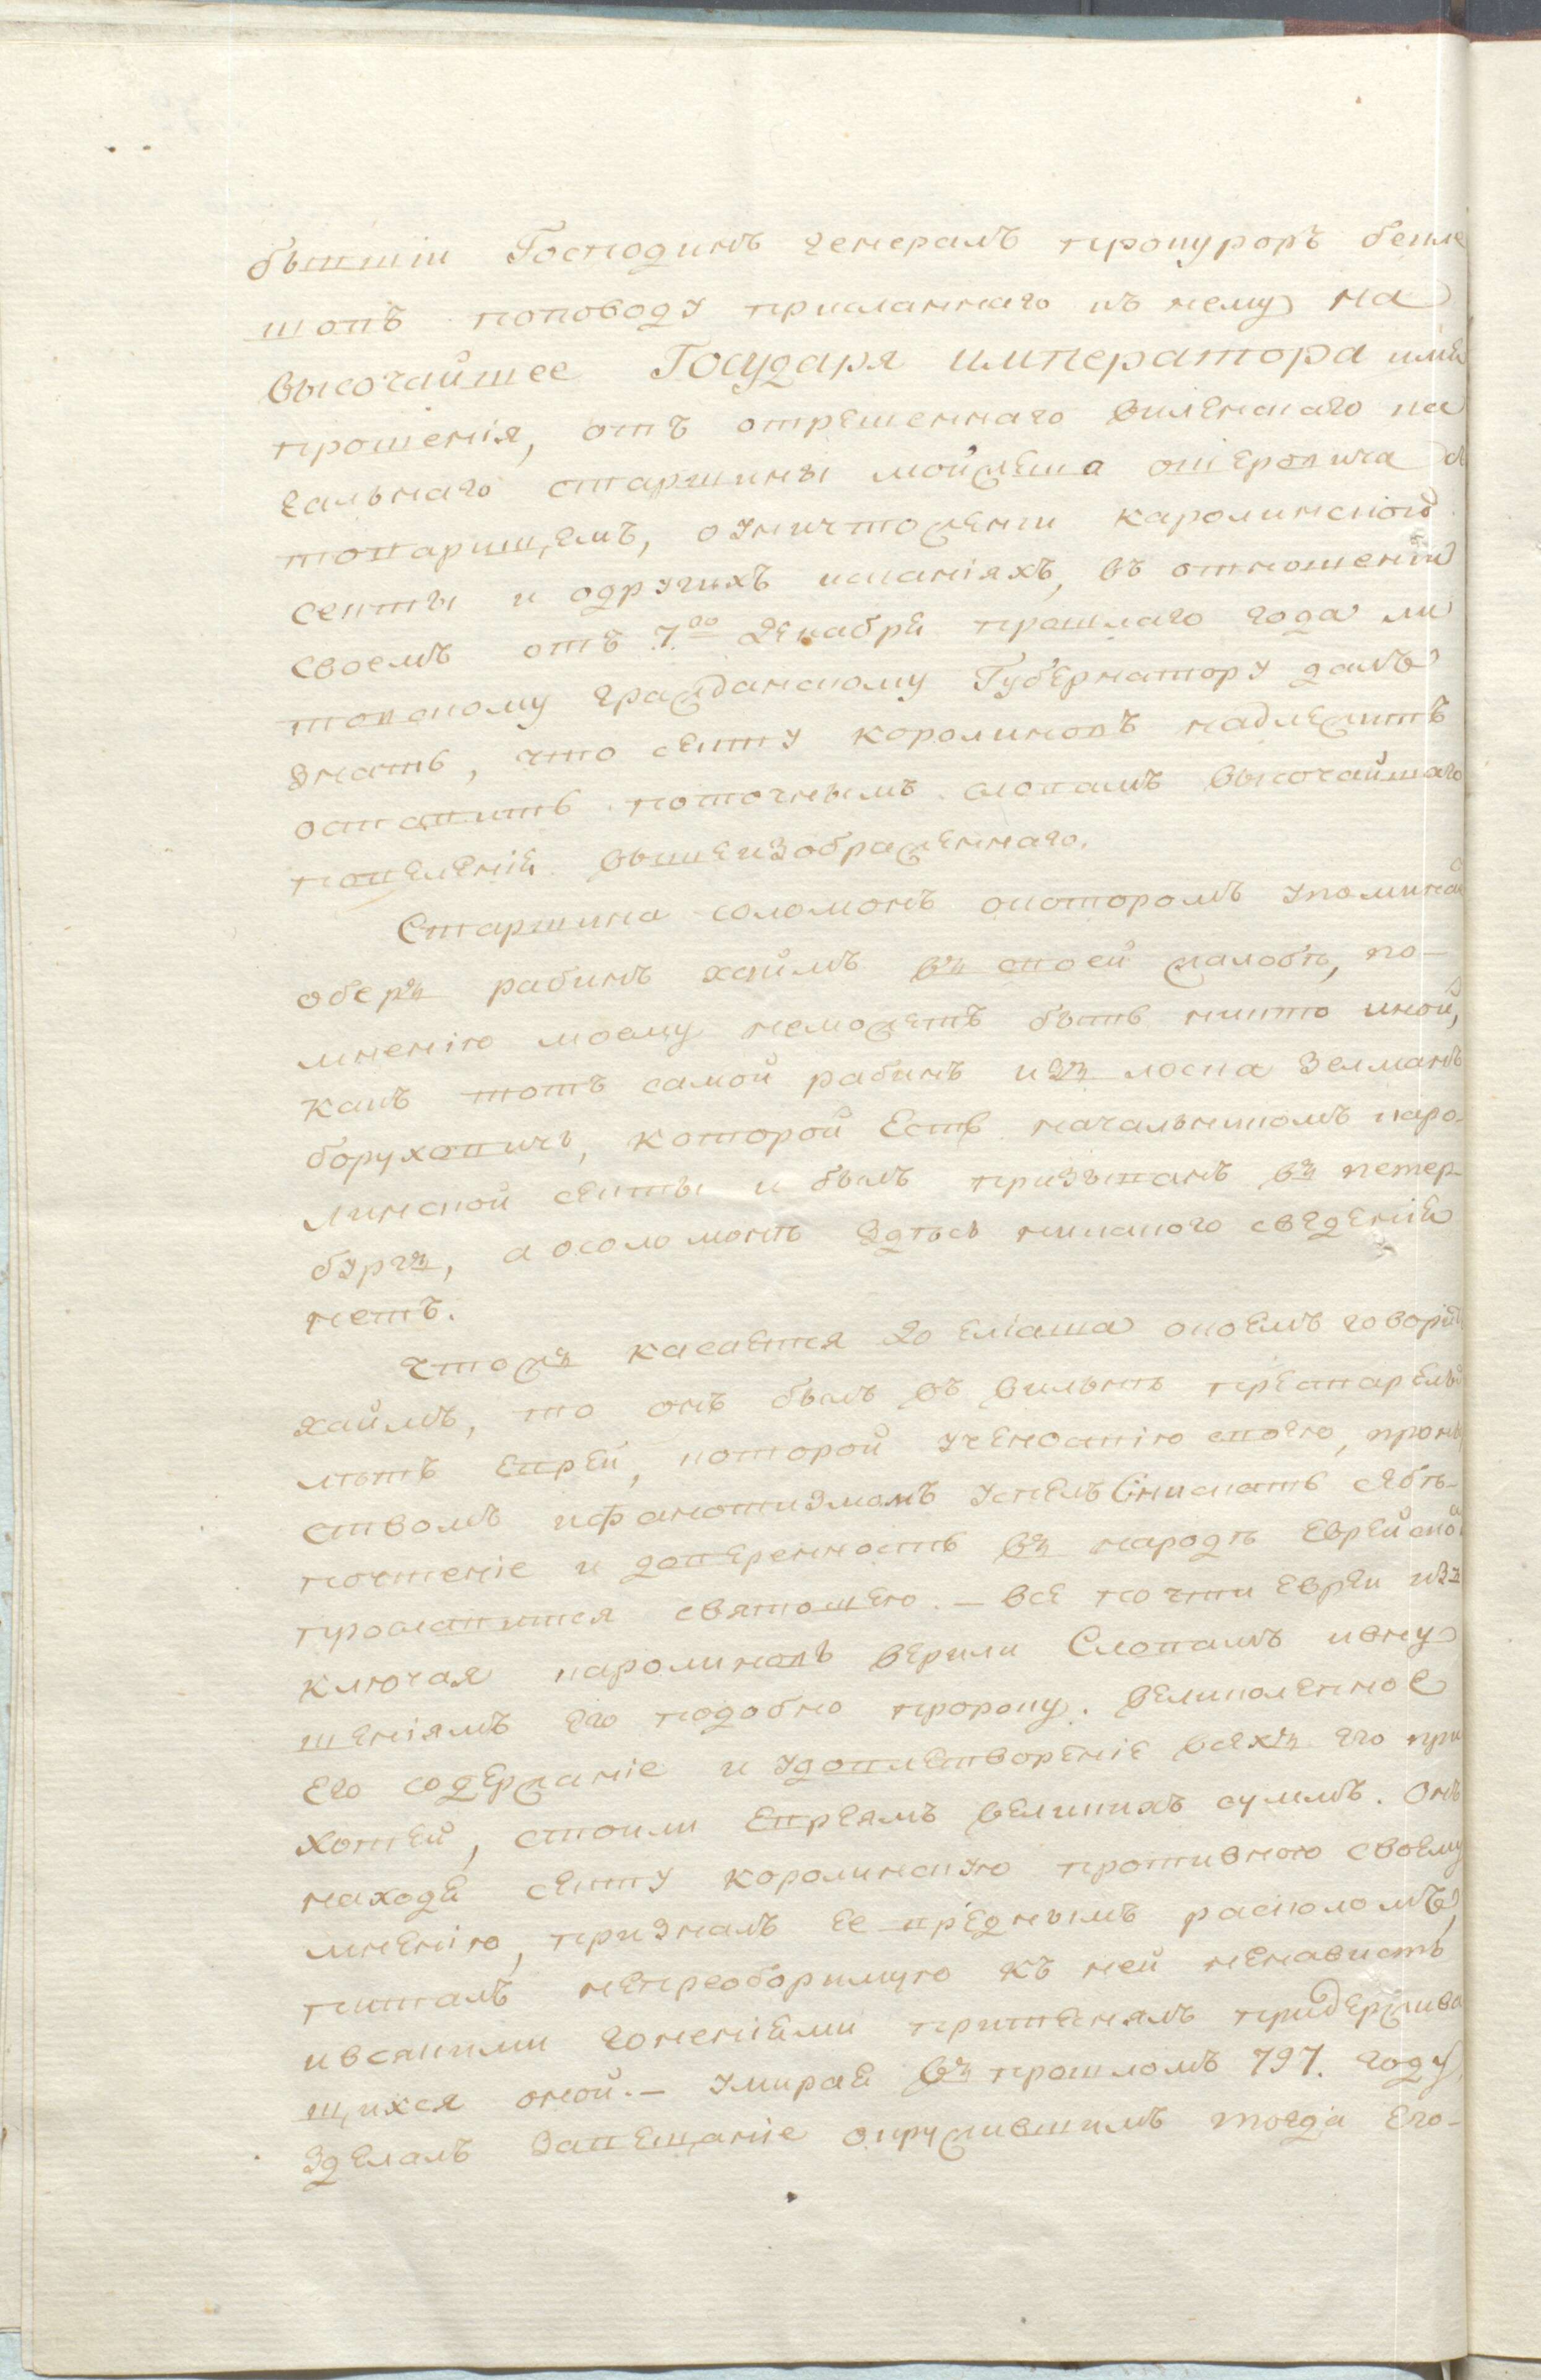 бывшіи Господинъ генералъ прокуроръ бекле
шовъ поповоду присланнаго къ нему на
высочайшее Государя императора имя
прошенія, отъ отрешеннаго виленскаго ка
гальнаго старшины мойжеша ошеровича съ
товарищемъ, оуничтоженіи каролинской
секты и одругихъ исканіяхъ, въ отношеніи
своемъ отъ 7го декабря прошлаго года ли
товскому гражданскому Губернатору далъ
знать, что секту королиновъ надлежитъ
оставить поточнымъ словамъ высочайшаго
повеленія вышеизображеннаго.
Старшина соломонъ окоторомъ упоминаи
оберъ рабинъ хаимъ въ своей жалобѣ, по-
мненію моему неможетъ быть никто иной,
какъ тотъ самой рабинъ изъ лосна Зелманъ
боруховичъ, которой Есть начальникомъ каро-
линской секты и былъ призыванъ въ петер-
бургъ, а осоломонѣ здѣсь никакого сведенія
нетъ.
чтожъ касается до еліаша окоемъ говорит
хаимъ, то онъ былъ въ вильнѣ престарелы
лѣтъ Еврей, которой ученостію своею, проныр
ствомъ ифанотизмомъ успелъ снискать себѣ-
почтеніе и доверенность въ народѣ Еврейской
прославится святошею. - все почти Евреи из
ключая каролиновъ верили Словамъ ивну
шеніямъ его подобно пророку. великоленное
его содержаніе и удовлетвореніе всехъ его при
хотей, стоили Евреямъ великихъ суммъ. онъ
находя секту королинскую противною своему
мненію, призналъ ее вреднымъ расколомъ,
питалъ непреоборимую къ ней ненависть
ивсякими гоненіями притеснялъ придержива
щихся оной. - умирая въ прошломъ 797. году,
зделалъ завещаніе окружившимъ тогда его-